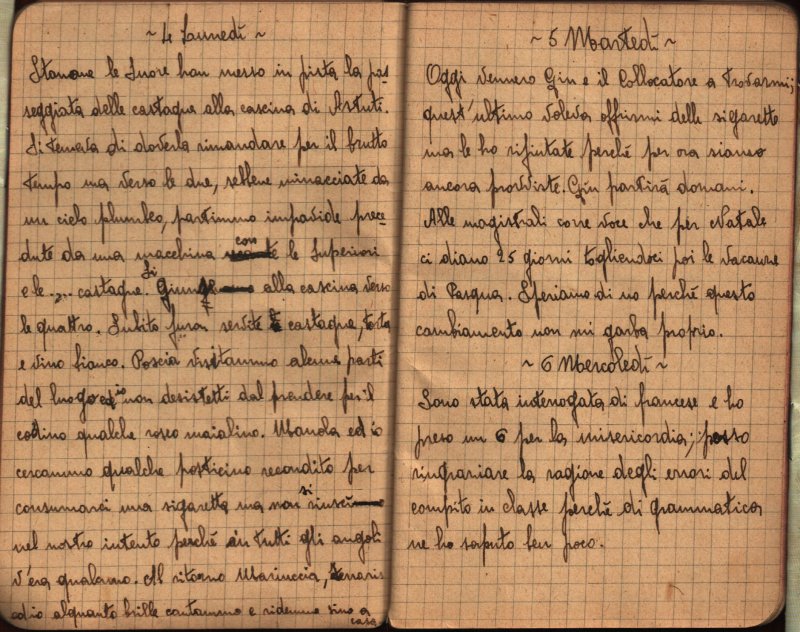 ~ 4 Lunedì ~
Stamane le Suore han messo in pista la pas-
seggiata delle castagne alla cascina di Astuti.
Si temeva di doverla rimandare per il brutto
tempo ma verso le due, sebbene minacciate da
un cielo plumbeo, partimmo impavide prece-
dute da una macchina con le Superiori
e le .... castagne. Si giunse alla cascina verso
le quattro. Subito furon servite castagne, torta
e vino bianco. Poscia visitammo alcune parti
del luogo ed io non desistetti dal prendere per il
codino qualche roseo maialino. Manola ed io
cercammo qualche posticino recondito per
consumarci una sigaretta ma non si riuscì
nel nostro intento perché in tutti gli angoli
v'era qualcuno. Al ritorno Mariuccia,
ed io alquanto brille cantammo e ridemmo sino a
casa
~ 5 Martedì ~
Oggi vennero Gin e il Collocatore a trovarmi;
quest'ultimo voleva offrirmi delle sigarette
ma le ho rifiutate perché per ora siamo
ancora provviste. Gin partirà domani.
Alle magistrali corre voce che per Natale
ci diano 25 giorni togliendoci poi le vacanze
di Pasqua. Speriamo di no perché questo
cambiamento non mi garba proprio.
~ 6 Mercoledì ~
Sono stata interrogata di francese e ho
preso un 6 per la misericordia; posso
ringraziare la ragione degli errori del
compito in classe perché di grammatica
ne ho saputo ben poco.